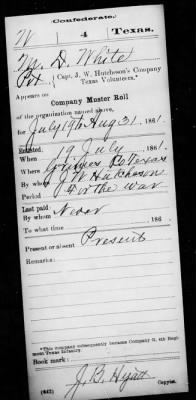 (Confederate.)
W 4 Texas.
M. D. White
Pvt., Capt. J. W. Hutcheson's Company Texas Volunteers.*
Appears on
Company Muster Roll
of the organization named above,
for July 19 to Aug 31, 1861.
Enlisted:
When 19 July, 1861.
Where Grimes Co Texas
By whom J W Hutcheson
Period For the war
Last paid:
By whom Never
To what time , 186 .
Present or absent Present
Remarks:
*This company subsequently became Company G, 4th Regiment Texas Infantry.
Book mark:
(642) J. B. Hyatt
Copyist.